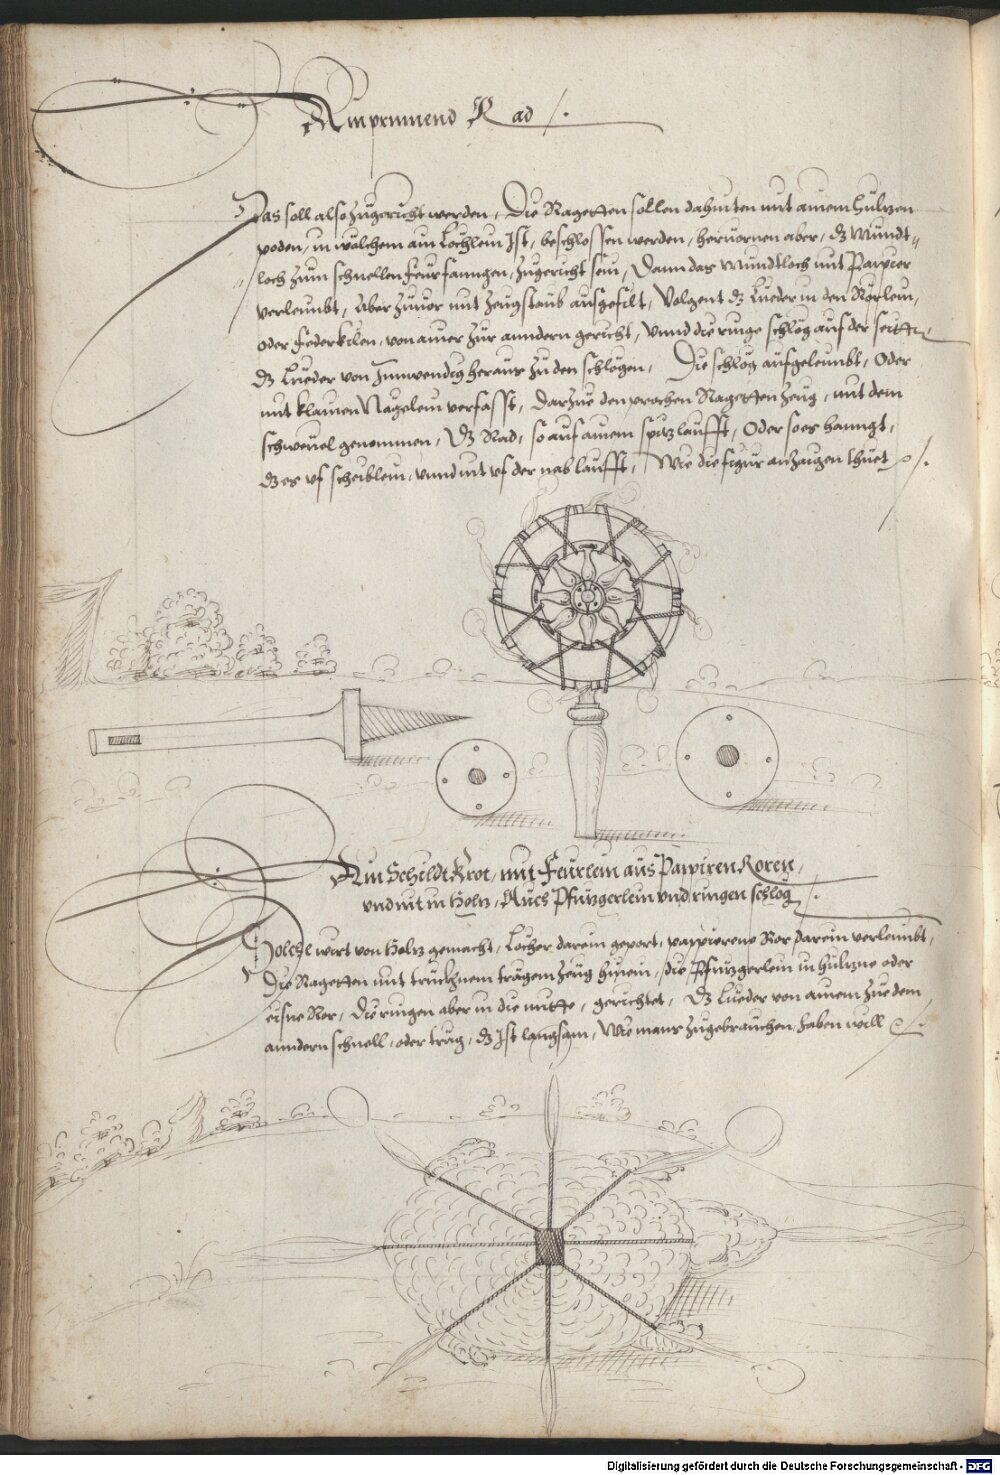 Ain prinnend Rad /.
Das soll also zugericht werden, Die Ragetten sollen dahinten mit ainem hültzen
poden, in wölchem ain Löchlein Ist, beschlossen werden, heruornen aber, dz Mundt„
loch zum schnellen feur fanngen, zugericht sein, Dann das Mundtloch mit Pappier
verleimbt, Aber zuuor mit zeugstaub ausgefilt, Volgent dz Lueder in den Rörlein,
oder federkilen, von ainer zur anndern gericht, Unnd die ringe schlög auf der seitten,
dz Lueder von Innwendig heraus zu den schlögen, Die schlög aufgeleimbt, Oder
mit klainen Nägelein verfasst, Darzue den prochen Ragetten zeug, mit dem
schwebel genommen, Dz Rad, so auf ainem spitz laufft, Oder so es hanngt,
dz es vf scheiblein, unnd nit vf der nab laufft, Wie die figur anzaigen thuet /.
Ain Schildt Krot, mit Feurlein aus Papiren Roren,
vnd nit in Holtz, Auch Pfützgerlein vnd ringen schlög /.
Solche wirt von Holtz gemacht, Löcher darein geport, pappierene Ror darein verleimbt,
Die Ragetten mit trucknem trägem zeug hinein, die Pfützgerlein in hültzne oder
eisne Ror, Die ringen aber in die mitte, gerichtet, Dz Lueder von ainem zue dem
anndern schnell, oder träg, dz Ist langsam, Wie mans zugebrauchen haben will /.
Digitalisierung gefördert durch die Deutsche Forschungsgemeinschaft - DFG